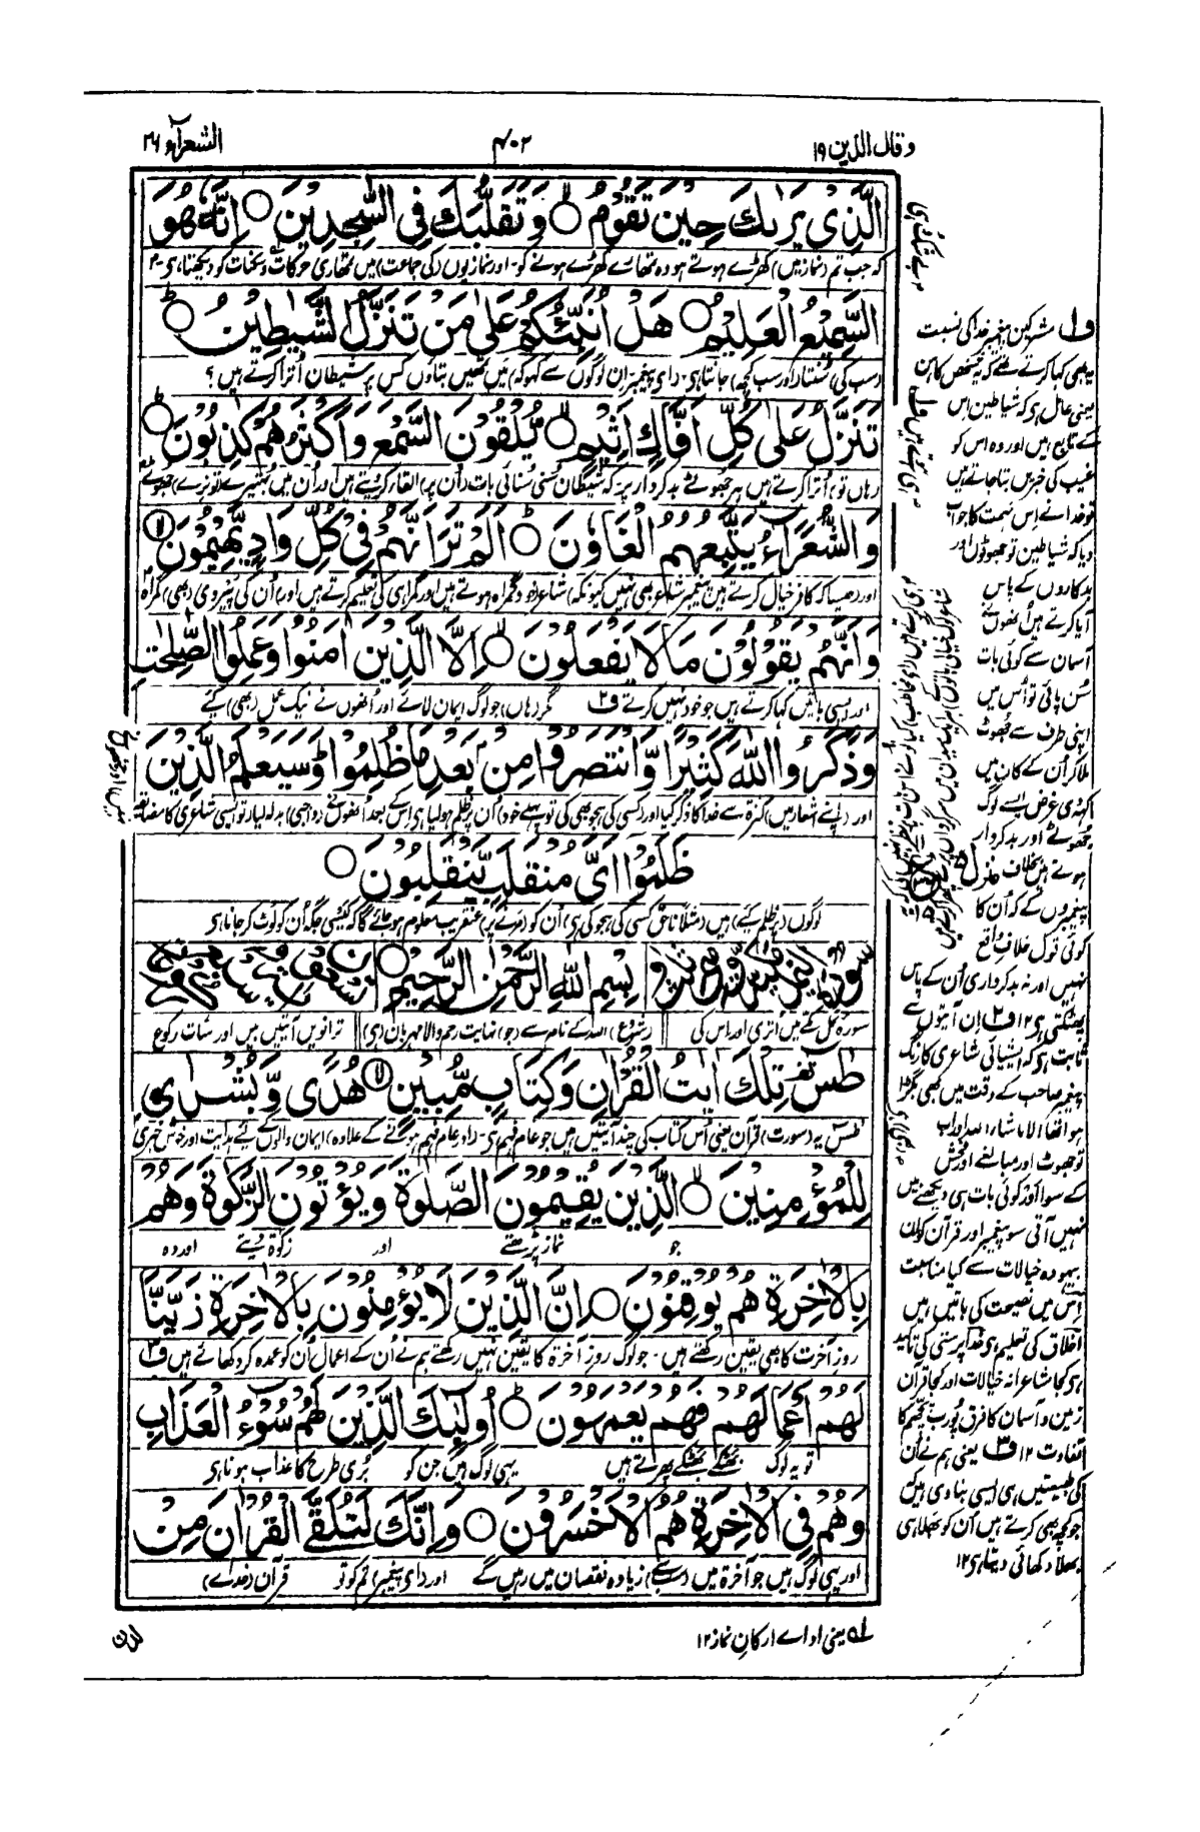 وقال الذین ۱۹
۴۰۲
الشعرآء ۲۶
الَّذِیْ یَرٰىكَ حِیْنَ تَقُوْمُ ۙ وَ تَقَلُّبَكَ فِی السّٰجِدِیْنَ اِنَّهٗ هُوَ
کہ جب تم (نماز میں) کھڑے ہوتے ہو وہ تمھارے کھڑے ہونے کو۔ اور نمازیوں (کی جماعت) میں تمھاری حرکات و سکنات کو دیکھتا ہی
السَّمِیْعُ الْعَلِیْمُ هَلْ اُنَبِّئُكُمْ عَلٰى مَنْ تَنَزَّلُ الشَّیٰطِیْنُ ؕ
سب کی سنتا (اور سب کچھ) جانتا ہی۔ (ای پیغمبر ان لوگوں سے کہو کہ) میں تمھیں بتاؤں کس پر شیطان اُترا کرتے ہیں ؟
تَنَزَّلُ عَلٰى كُلِّ اَفَّاكٍ اَثِیْمٍ ۙ یُّلْقُوْنَ السَّمْعَ وَ اَكْثَرُهُمْ كٰذِبُوْنَ ؕ
(ہاں تو) اُترا کرتے ہیں ہر جھوٹے بدکردار پر کہ شیطان سنی سنائی بات (اُن پر) القا کر دیتے ہیں اور اُن میں بہتیرے (تو نرے) جھوٹے
وَ الشُّعَرَآءُ یَتَّبِعُهُمُ الْغَاوٗنَ ؕ اَلَمْ تَرَ اَنَّهُمْ فِیْ كُلِّ وَادٍ یَّهِیْمُوْنَ ۙ
اور (جیسا کہ کافر خیال کرتے ہیں پیغمبر شاعر بھی نہیں کیونکہ) شاعر (خود گمراہ ہوتے ہیں اور گمراہی کی تعلیم کرتے ہیں اور) اُن کی پیروی (بھی) گمراہ
وَ اَنَّهُمْ یَقُوْلُوْنَ مَا لَا یَفْعَلُوْنَ ۙ اِلَّا الَّذِیْنَ اٰمَنُوْا وَ عَمِلُوا الصّٰلِحٰتِ
اور ایسی باتیں کہا کرتے ہیں جو خود نہیں کرتے ف۲ مگر (ہاں) جو لوگ ایمان لائے اور اُنھوں نے نیک عمل (بھی) کیے
وَ ذَكَرُوا اللّٰهَ كَثِیْرًا وَّ انْتَصَرُوْا مِنْۢ بَعْدِ مَا ظُلِمُوْا ؕ وَ سَیَعْلَمُ الَّذِیْنَ
اور (اپنے اشعار میں) کثرۃ سے خدا کا ذکر کیا اور (کسی کی ہجو بھی کی تو پہلے خود) اُن پر ظلم ہو لیا ہی اِس کے بعد اُنھوں نے (واجبی) بدلہ لیا
ظَلَمُوْۤا اَیَّ مُنْقَلَبٍ یَّنْقَلِبُوْنَ
لوگوں (پر ظلم کیے) ہیں (مثلاً ناحق کسی کی ہجو کی ہی) اُن کو (مرنے پر) عنقریب معلوم ہو جائے گا کہ کیسی جگہ اُن کو لوٹ کر جانا ہی
بِسْمِ اللّٰهِ الرَّحْمٰنِ الرَّحِیْمِ
سورۂ نمل مکے میں اُتری اور اس کی (شروع) اللہ کے نام سے (جو) نہایت رحم والا مہربان (ہی) ترانویں آیتیں ہیں اور سات رکوع
طٰسٓ تِلْكَ اٰیٰتُ الْقُرْاٰنِ وَ كِتَابٍ مُّبِیْنٍ ۙ هُدًى وَّ بُشْرٰى
طٰسٓ یہ (سورت) قرآن یعنی اُس کتاب کی چند آیتیں ہیں جو عام فہم ہی۔ (اور عام فہم ہونے کے علاوہ) ایمان والوں کے لیے ہدایت اور خوش خبری
لِلْمُؤْمِنِیْنَ ۙ الَّذِیْنَ یُقِیْمُوْنَ الصَّلٰوةَ وَ یُؤْتُوْنَ الزَّكٰوةَ وَ هُمْ
جو نماز پڑھتے اور زکوٰۃ دیتے اور وہ
بِالْاٰخِرَةِ هُمْ یُوْقِنُوْنَ اِنَّ الَّذِیْنَ لَا یُؤْمِنُوْنَ بِالْاٰخِرَةِ زَیَّنَّا
روز آخرت کا بھی یقین رکھتے ہیں۔ جو لوگ روز آخرۃ کا یقین نہیں رکھتے ہم نے اُن کے اعمال اُن کو عمدہ کر دکھائے ہیں ف۳
لَهُمْ اَعْمَالَهُمْ فَهُمْ یَعْمَهُوْنَ ؕ اُولٰٓئِكَ الَّذِیْنَ لَهُمْ سُوْٓءُ الْعَذَابِ
تو یہ لوگ بھٹکے بھٹکے پھرتے ہیں یہی لوگ ہیں جن کو بُری طرح کا عذاب ہونا ہی
وَ هُمْ فِی الْاٰخِرَةِ هُمُ الْاَخْسَرُوْنَ وَ اِنَّكَ لَتُلَقَّى الْقُرْاٰنَ مِنْ
اور یہی لوگ ہیں جو آخرۃ میں (سب سے) زیادہ نقصان میں رہیں گے اور (ای پیغمبر) تم کو تو قرآن (خدائے)
ف۱ مشرکین پیغمبر خدا کی نسبت
یہ بھی کہا کرتے تھے کہ یہ شخص کاہن
یعنی عامل ہی کہ شیاطین اِس
کے تابع ہیں اور وہ اس کو
غیب کی خبریں بتا جاتے ہیں
تو خدا نے اِس تہمت کا جواب
دیا کہ شیاطین تو جھوٹوں اور
بدکاروں کے پاس
آیا کرتے ہیں اُنھوں نے
آسمان سے کوئی بات
سُن پائی تو اُس میں
اپنی طرف سے جھوٹ
ملا کر اُن کے کان میں
ڈال دی غرض ایسے لوگ
جھوٹے اور بدکردار
ہوتے ہیں بخلاف
پیغمبروں کے کہ اُن کا
کوئی قول خلاف واقع
نہیں اور نہ بدکرداری اُن کے پاس
پھٹکتی ہی ۱۲ ف۲ اِن آیتوں سے
ثابت ہی کہ ایشیائی شاعری کا رنگ
پیغمبر صاحب کے وقت میں بھی بگڑا
ہوا تھا الا ماشاء اللہ اور اب
تو جھوٹ اور مبالغے اور فحش
کے سوا اور کوئی بات ہی دیکھنے میں
نہیں آتی سو پیغمبر اور قرآن کو ان
بیہودہ خیالات سے کیا مناسبت
اِس میں نصیحت کی باتیں ہیں
اخلاق کی تعلیم ہی خدا پرستی کی تاکید
ہی کجا شاعرانہ خیالات اور کجا قرآن
زمین و آسمان کا فرق پورب پچھم کا
تفاوت ۱۲ ف۳ یعنی ہم نے اُن
کی طبیعتیں ہی ایسی بنا دی ہیں کہ
جو کچھ بھی کرتے ہیں اُن کو بھلا ہی
بھلا دکھائی دیتا ہی ۱۲
لہ یعنی اداے ارکان نماز ۱۲
لدن